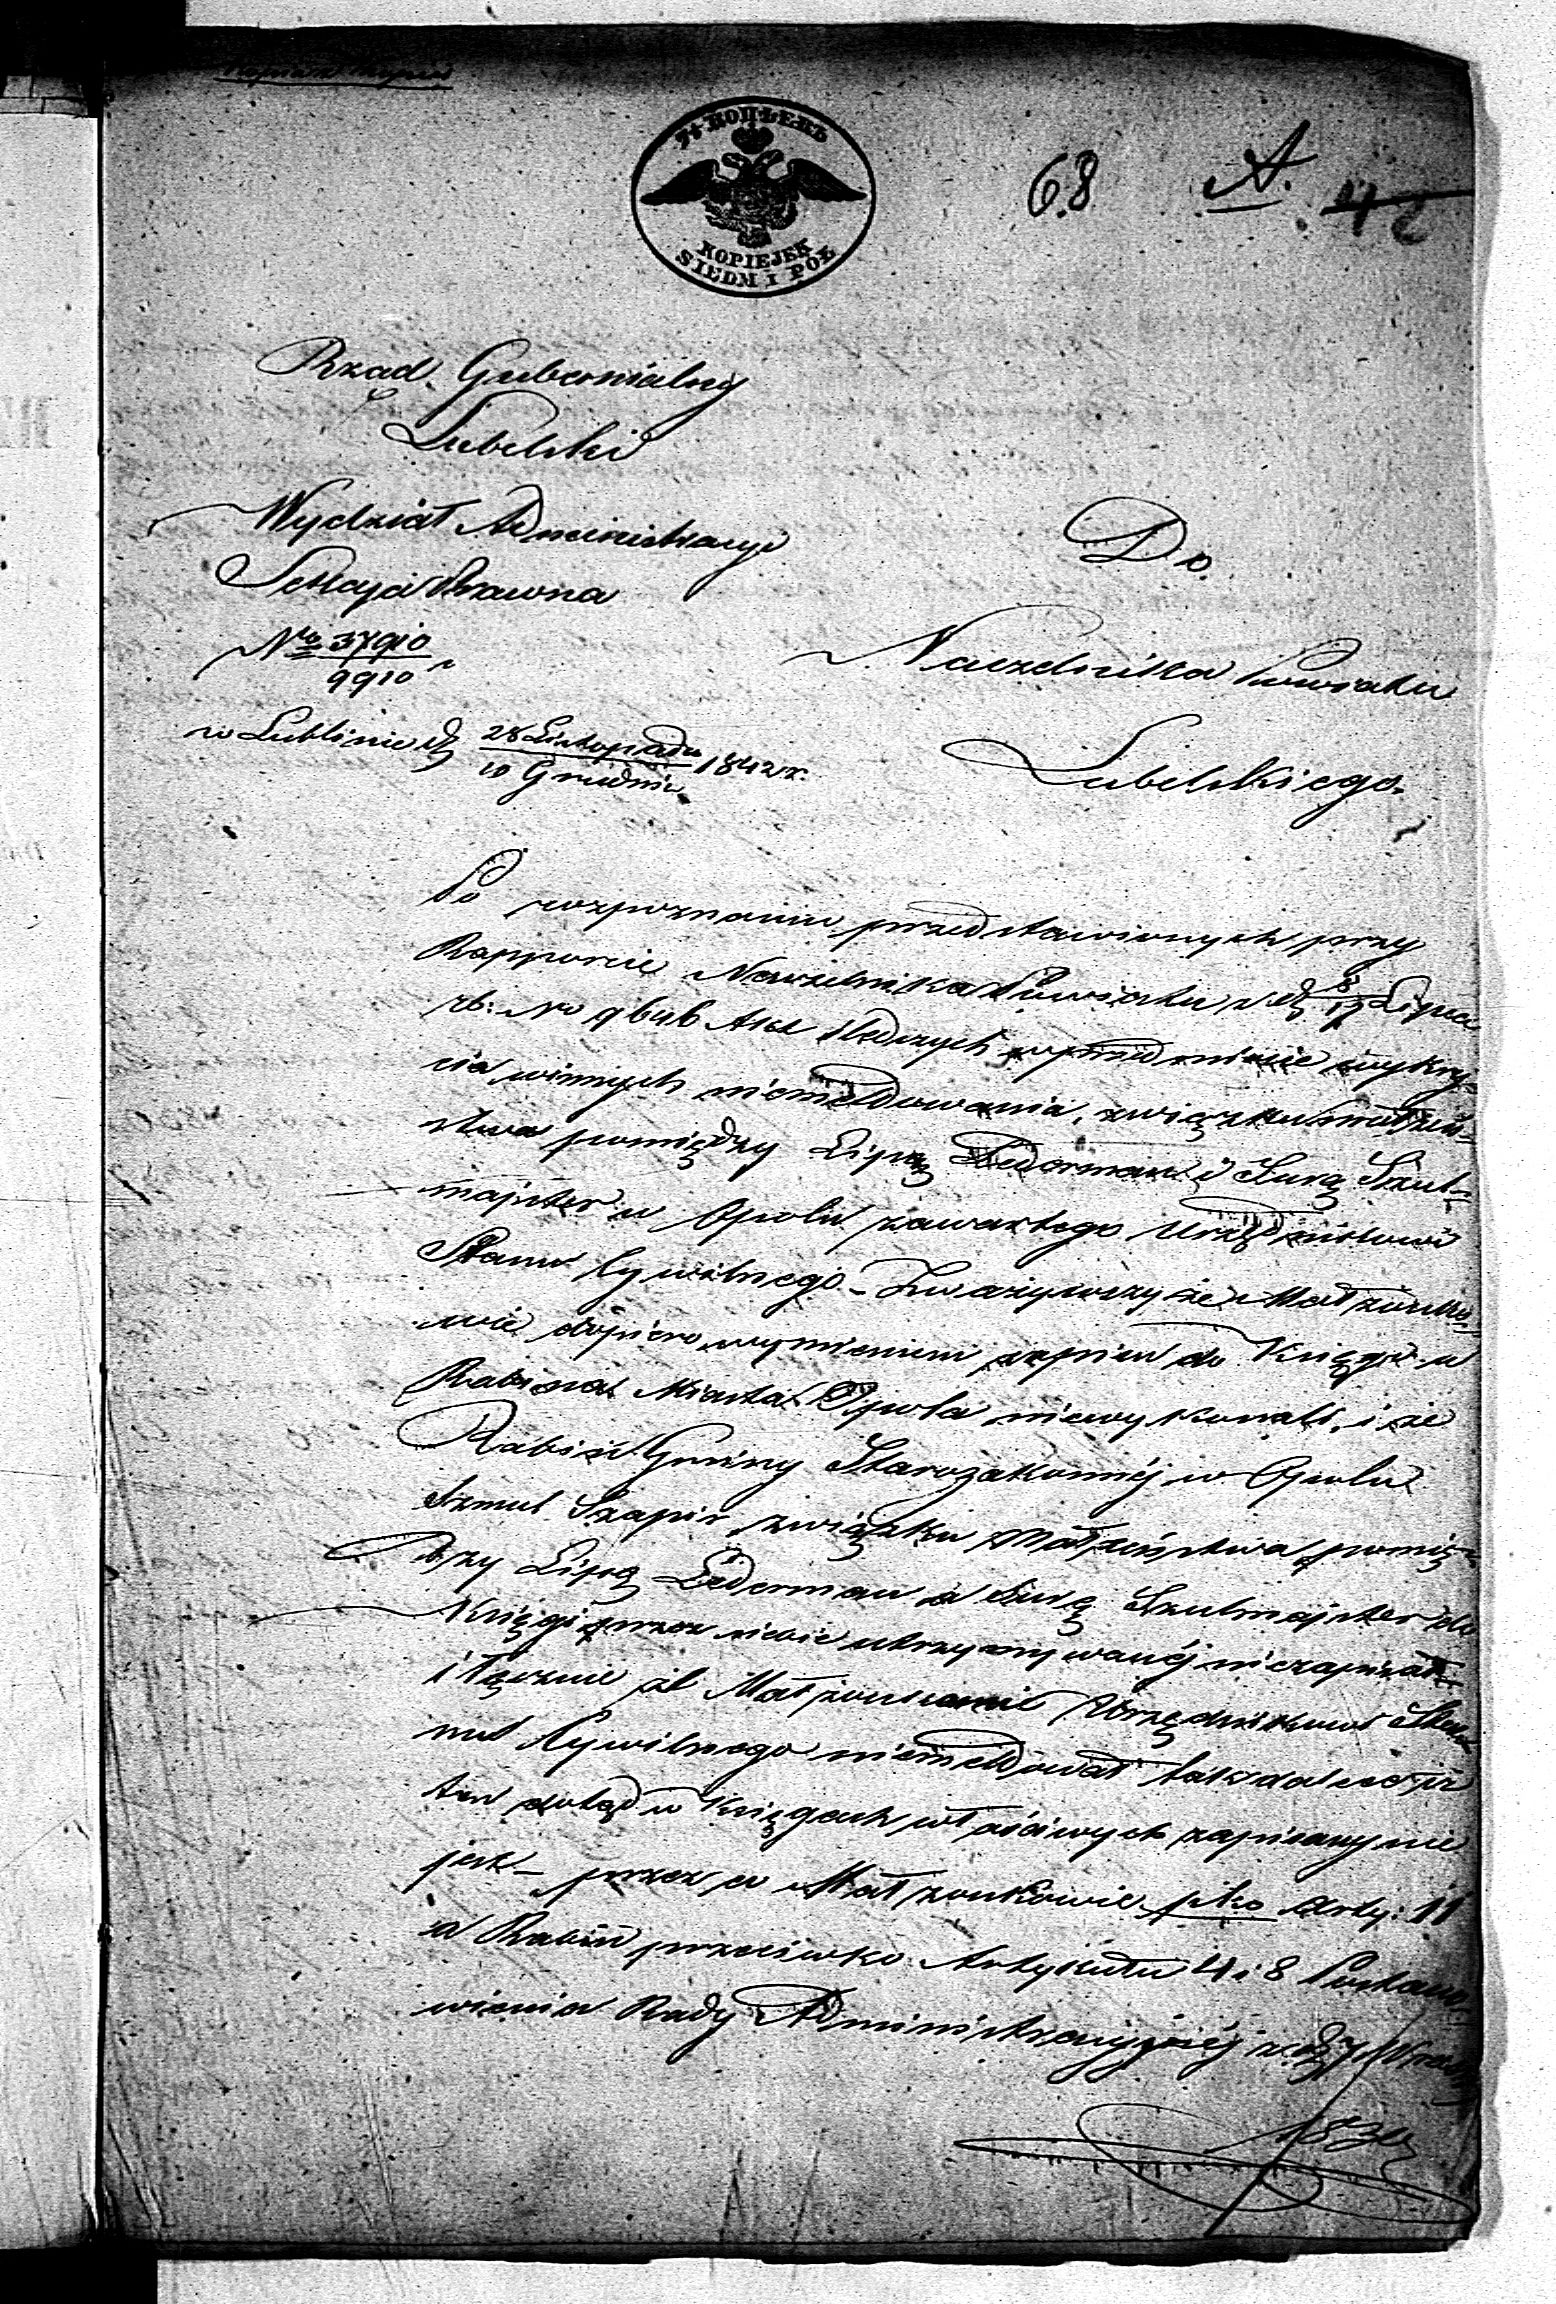 7½ КОПѢЕКЪ
KOPIEJEK
SIEDM I POŁ
68 A.
Rząd Gubernialny
Lubelski
Wydział Administracyi
Sekcya Prawna
No 37910
9910
w Lublinie d. 28 Listopada
10 Grudnia 1842 r.
Do
Naczelnika Powiatu
Lubelskiego.
Po rozpoznaniu przedstawionych przy
Rapporcie Naczelnika Powiatu z d. Lipca
rb: No 9646 Akt śledczych w przedmiocie wykry=
cia winnych niemeldowania, związku małżeń=
stwa pomiędzy Lipą Lederman i Surą Szul=
majster w Opolu zawartego Urzędnikowi
Stanu Cywilnego. – Zważywszy że Małżonko=
wie dopiero wymienieni zapisu do Księgi u
Rabina Miasta Opola niewykonali, i że
Rabin Gminy Starozakonnéj w Opolu
Szmul Szapir związku Małżeństwa pomię=
dzy Lipą Lederman a Surą Szulmajster do
Księgi przez siebie utrzymywanéj niezapisał
i łącznie z Małżonkami Urzędnikowi Sta=
nu Cywilnego niemeldował tak dalece iż
ten dotąd w Księgach właściwych zapisany nie
jest – przez co Małżonkowie pko Arty: 11
a Rabin przeciwko Artykułu 4 i 8 Postano=
wienia Rady Administracyjnéj z d. 7